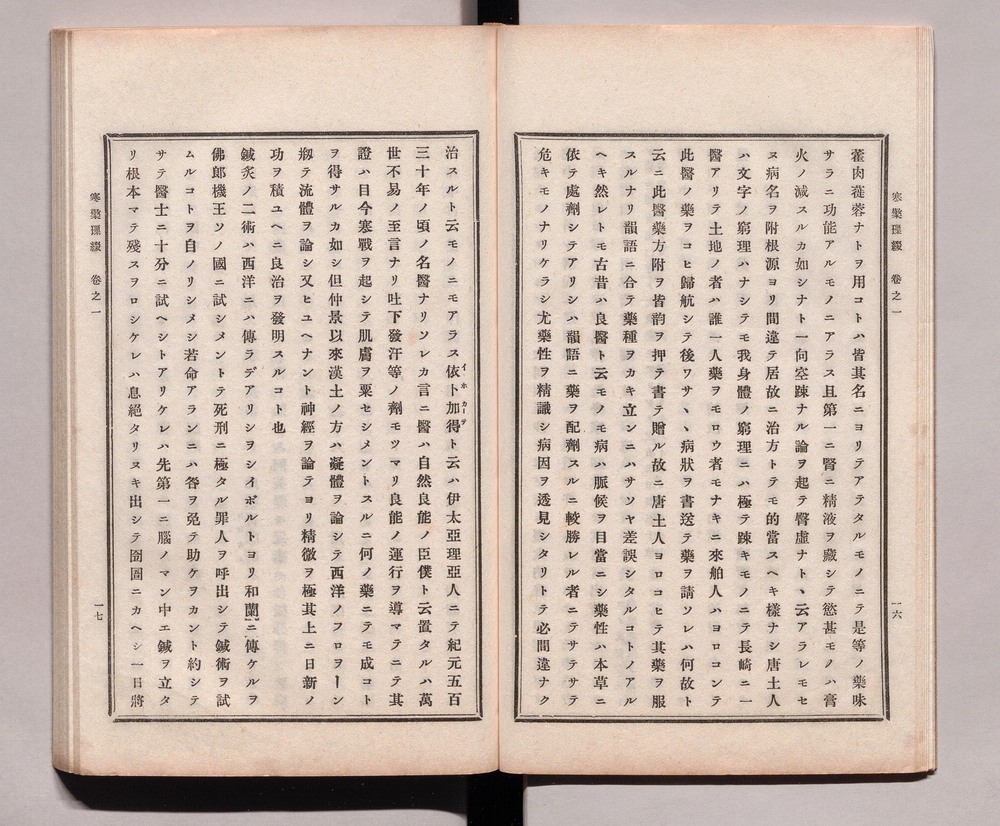 寒檠璅綴　卷之一
藿肉蓯蓉ナトヲ用コトハ皆其名ニヨリテアテタルモノニテ是等ノ藥味
サラニ功能アルモノニアラス且第一ニ腎ニ精液ヲ藏シテ慾甚モノハ膏
火ノ減スルカ如シナト一向空踈ナル論ヲ起テ腎虚ナトヽ云アラレモセ
ヌ病名ヲ附根源ヨリ間違テ居故ニ治方トテモ的當スヘキ樣ナシ唐土人
ハ文字ノ窮理ハナシテモ我身體ノ窮理ニハ極テ踈キモノニテ長崎ニ一
醫アリテ土地ノ者ハ誰一人藥ヲモロウ者モナキニ來舶人ハヨロコンテ
此醫ノ藥ヲコヒ歸航シテ後ワサヽヽ病狀ヲ書送テ藥ヲ請ソレハ何故ト
云ニ此醫藥方附ヲ皆韵ヲ押テ書テ贈ル故ニ唐土人ヨロコヒテ其藥ヲ服
スルナリ韻語ニ合テ藥種ヲカキ立ンニハサソヤ差誤シタルコトノアル
ヘキ然レトモ古昔ハ良醫ト云モノモ病ハ脈候ヲ目當ニシ藥性ハ本草ニ
依テ處劑シテアリシハ韻語ニ藥ヲ配劑スルニ較勝レル者ニテサテサテ
危キモノナリケラシ尤藥性ヲ精識シ病因ヲ透見シタリトテ必間違ナク
一六
治スルト云モノニモアラス依卜加得ト云ハ伊太亞理亞人ニテ紀元五百
イホカーテ
三十年ノ頃ノ名醫ナリソレカ言ニ醫ハ自然良能ノ臣僕ト云置タルハ萬
世不易ノ至言ナリ吐下發汗等ノ劑モツマリ良能ノ運行ヲ導マテニテ其
證ハ目今寒戰ヲ起シテ肌膚ヲ粟セシメントスルニ何ノ藥ニテモ成コト
ヲ得サルカ如シ但仲景以來漢土ノ方ハ凝體ヲ論シテ西洋ノフロヲーン
剏テ流體ヲ論シ又ヒユヘナント神經ヲ論テヨリ精徴ヲ極其上ニ日新ノ
功ヲ積ユヘニ良治ヲ發明スルコト也
鍼炙ノ二術ハ西洋ニハ傳ラデアリシヲシイボルトヨリ和蘭ニ傳ケルヲ
佛郎機王ソノ國ニ試シメントテ死刑ニ極タル罪人ヲ呼出シテ鍼術ヲ試
ムルコトヲ自ノリシメシ若命アランニハ咎ヲ免テ助ケヲカント約シテ
サテ醫士ニ十分ニ試ヘシトアリケレハ先第一ニ腦ノマン中エ鍼ヲ立タ
リ根本マテ殘スヲロシケレハ息絶タリヌキ出シテ囹圄ニカヘシ一日將
寒檠璅綴　卷之一
一七